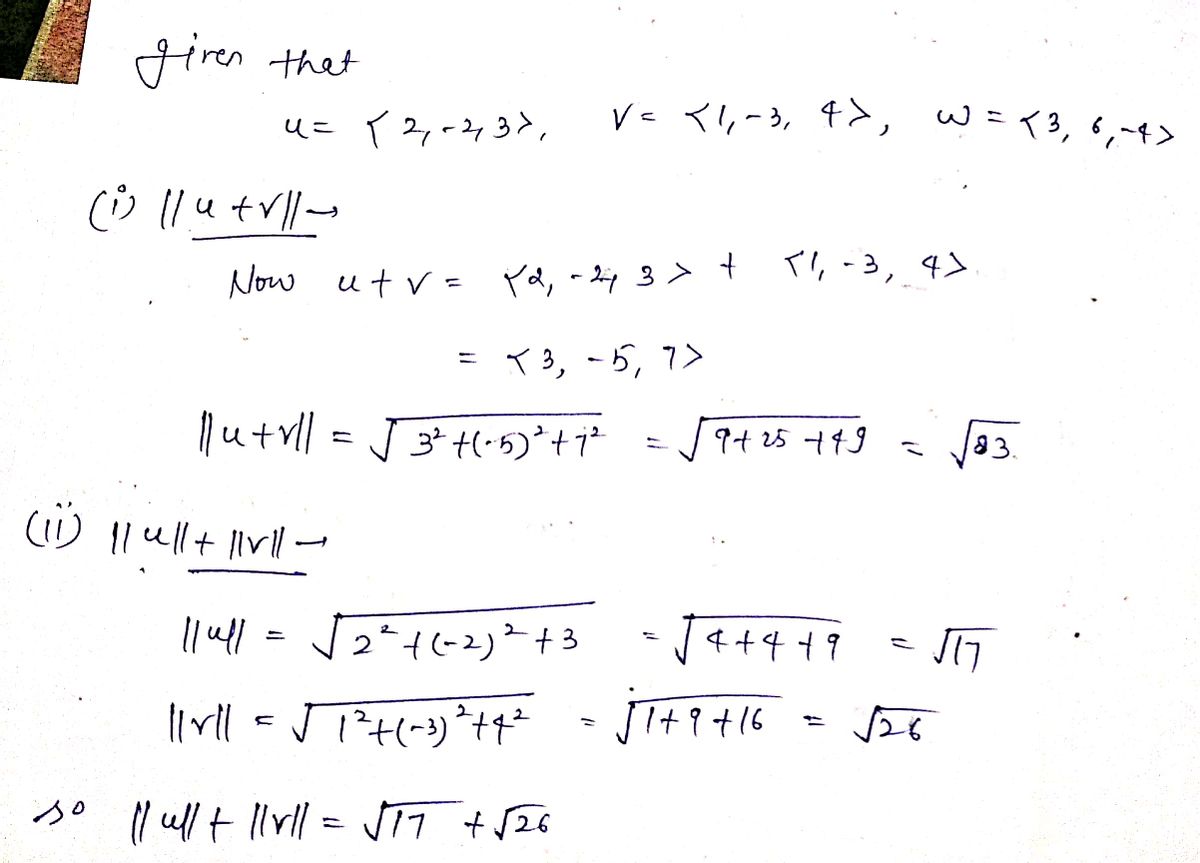 given that
u = < 2, -2, 3 >, v = < 1, -3, 4 >, w = < 3, 6, -4 >
(i) ||u + v|| →
Now u + v = < 2, -2, 3 > + < 1, -3, 4 >
= < 3, -5, 7 >
||u + v|| = √(3² + (-5)² + 7²) = √(9 + 25 + 49) = √83.
(ii) ||u|| + ||v|| →
||u|| = √(2² + (-2)² + 3) = √(4 + 4 + 9) = √17
||v|| = √(1² + (-3)² + 4²) = √(1 + 9 + 16) = √26
so ||u|| + ||v|| = √17 + √26